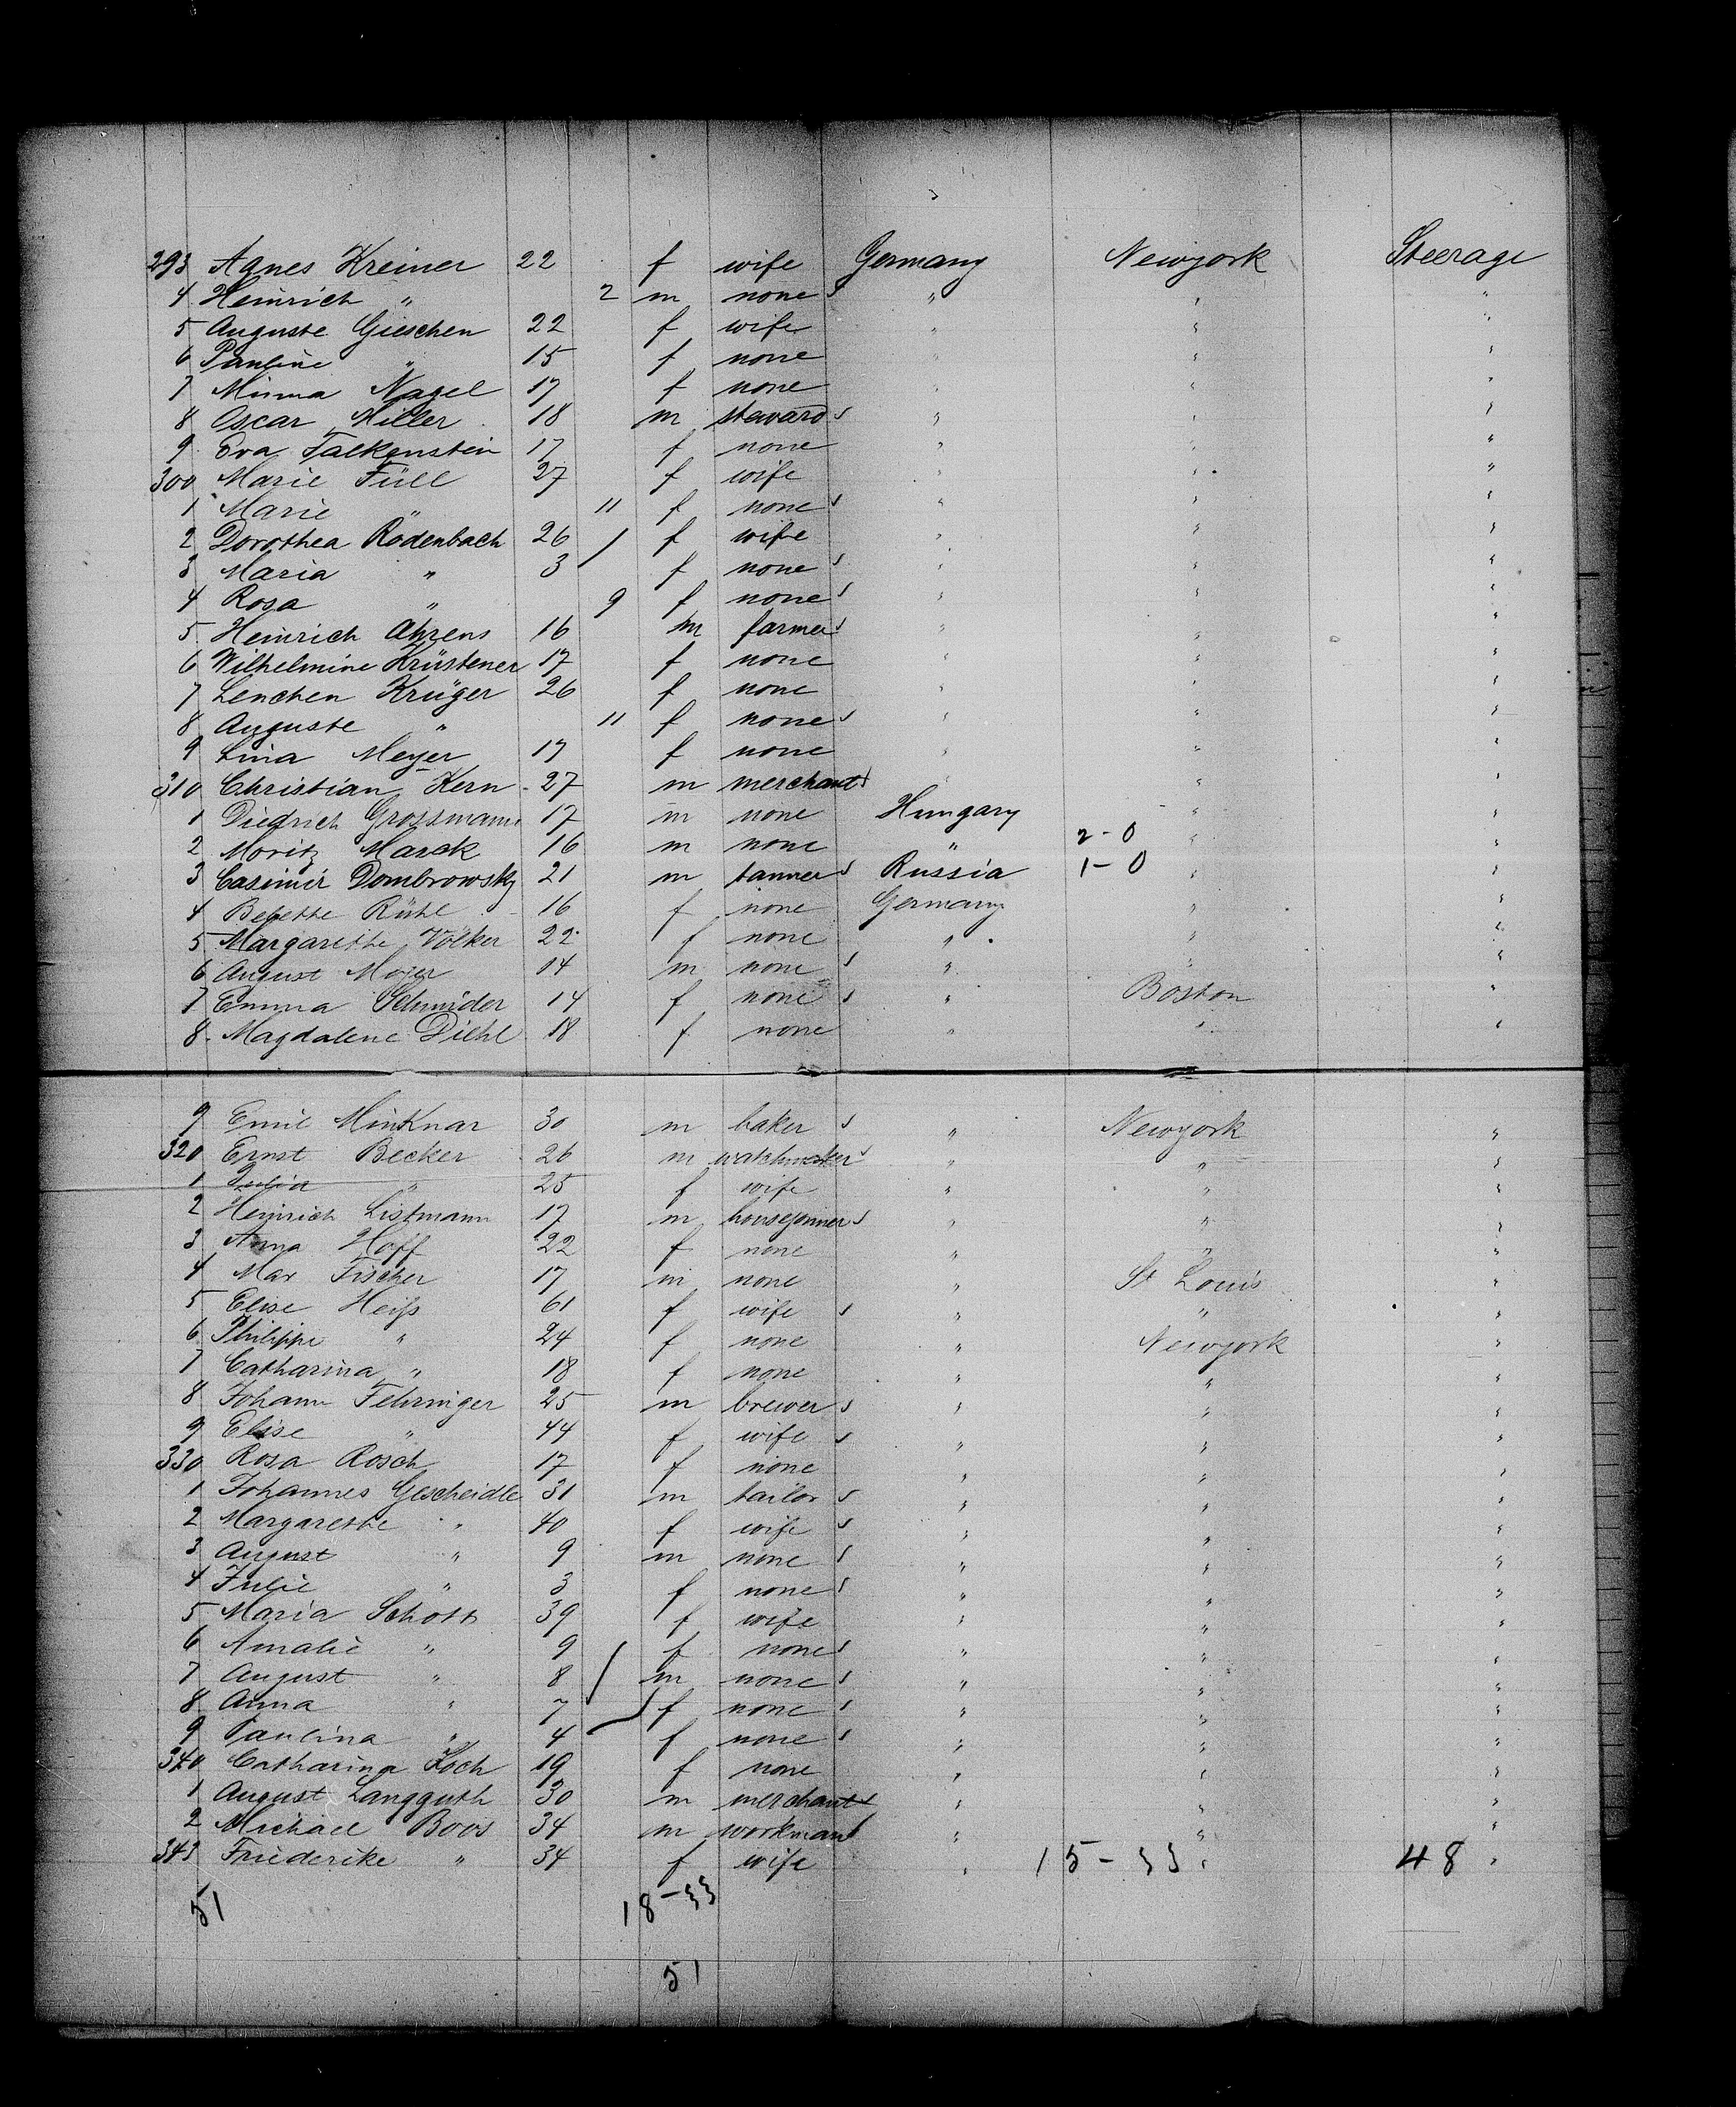 293 Agnes Kreiner 22 f wife Germany Newyork Steerage
4 Heinrich " 2 m none " " "
5 Auguste Gieschen 22 f wife " " "
6 Pauline " 15 f none " "
7 Minna Nagel 17 f none " " "
8 Oscar Hiller 18 m steward " " "
9 Eva Falkenstein 17 f none " " "
300 Marie Füll 27 f wife " " "
1 Marie " 11 f none " " "
2 Dorothea Rödenbach 26 f wife " " "
3 Maria " 3 f none " " "
4 Rosa " 9 f none " " "
5 Heinrich Ahrens 16 m farmer " " "
6 Wilhelmine Krüstener 17 f none " " "
7 Lenchen Krüger 26 f none " " "
8 Auguste " 11 f none " " "
9 Lina Meyer 17 f none " " "
310 Christian Kern 27 m merchant " " "
1 Diedrich Grossmann 17 m none Hungary " "
2 Moritz Marck 16 m none " 2-0 " "
3 Casimir Dombrowsky 21 m tanner Russia 1-0 " "
4 Babette Rühl 16 f none Germany " "
5 Margarethe Völker 22 f none " " "
6 August Meyer 14 m none " " "
7 Emma Schmider 14 f none " Boston "
8 Magdalene Diehl 18 f none " " "
9 Emil Minknar 30 m baker " Newyork "
320 Ernst Becker 26 m watchmaker " " "
1 Julia " 25 f wife " " "
2 Heinrich Listmann 17 m housejoiner " " "
3 Anna Hoff 22 f none " " "
4 Max Fischer 17 m none " St Louis "
5 Elise Heiß 61 f wife " " "
6 Philippe " 24 f none " Newyork "
7 Catharina " 18 f none " " "
8 Johann Fehringer 25 m brewer " " "
9 Elise " 44 f wife " " "
330 Rosa Rosch 17 f none " " "
1 Johannes Gescheidle 31 m tailor " " "
2 Margarethe " 40 f wife " " "
3 August " 9 m none " " "
4 Julie " 3 f none " " "
5 Maria Schott 39 f wife " " "
6 Amalie " 9 f none " " "
7 August " 8 m none " " "
8 Anna " 7 f none " " "
9 Paulina " 4 f none " " "
340 Catharina Koch 19 f none " " "
1 August Langguth 30 m merchant " " "
2 Michael Boos 34 m workman " " "
343 Friederike " 34 f wife " 15-33 " 48 "
51 18-33
51